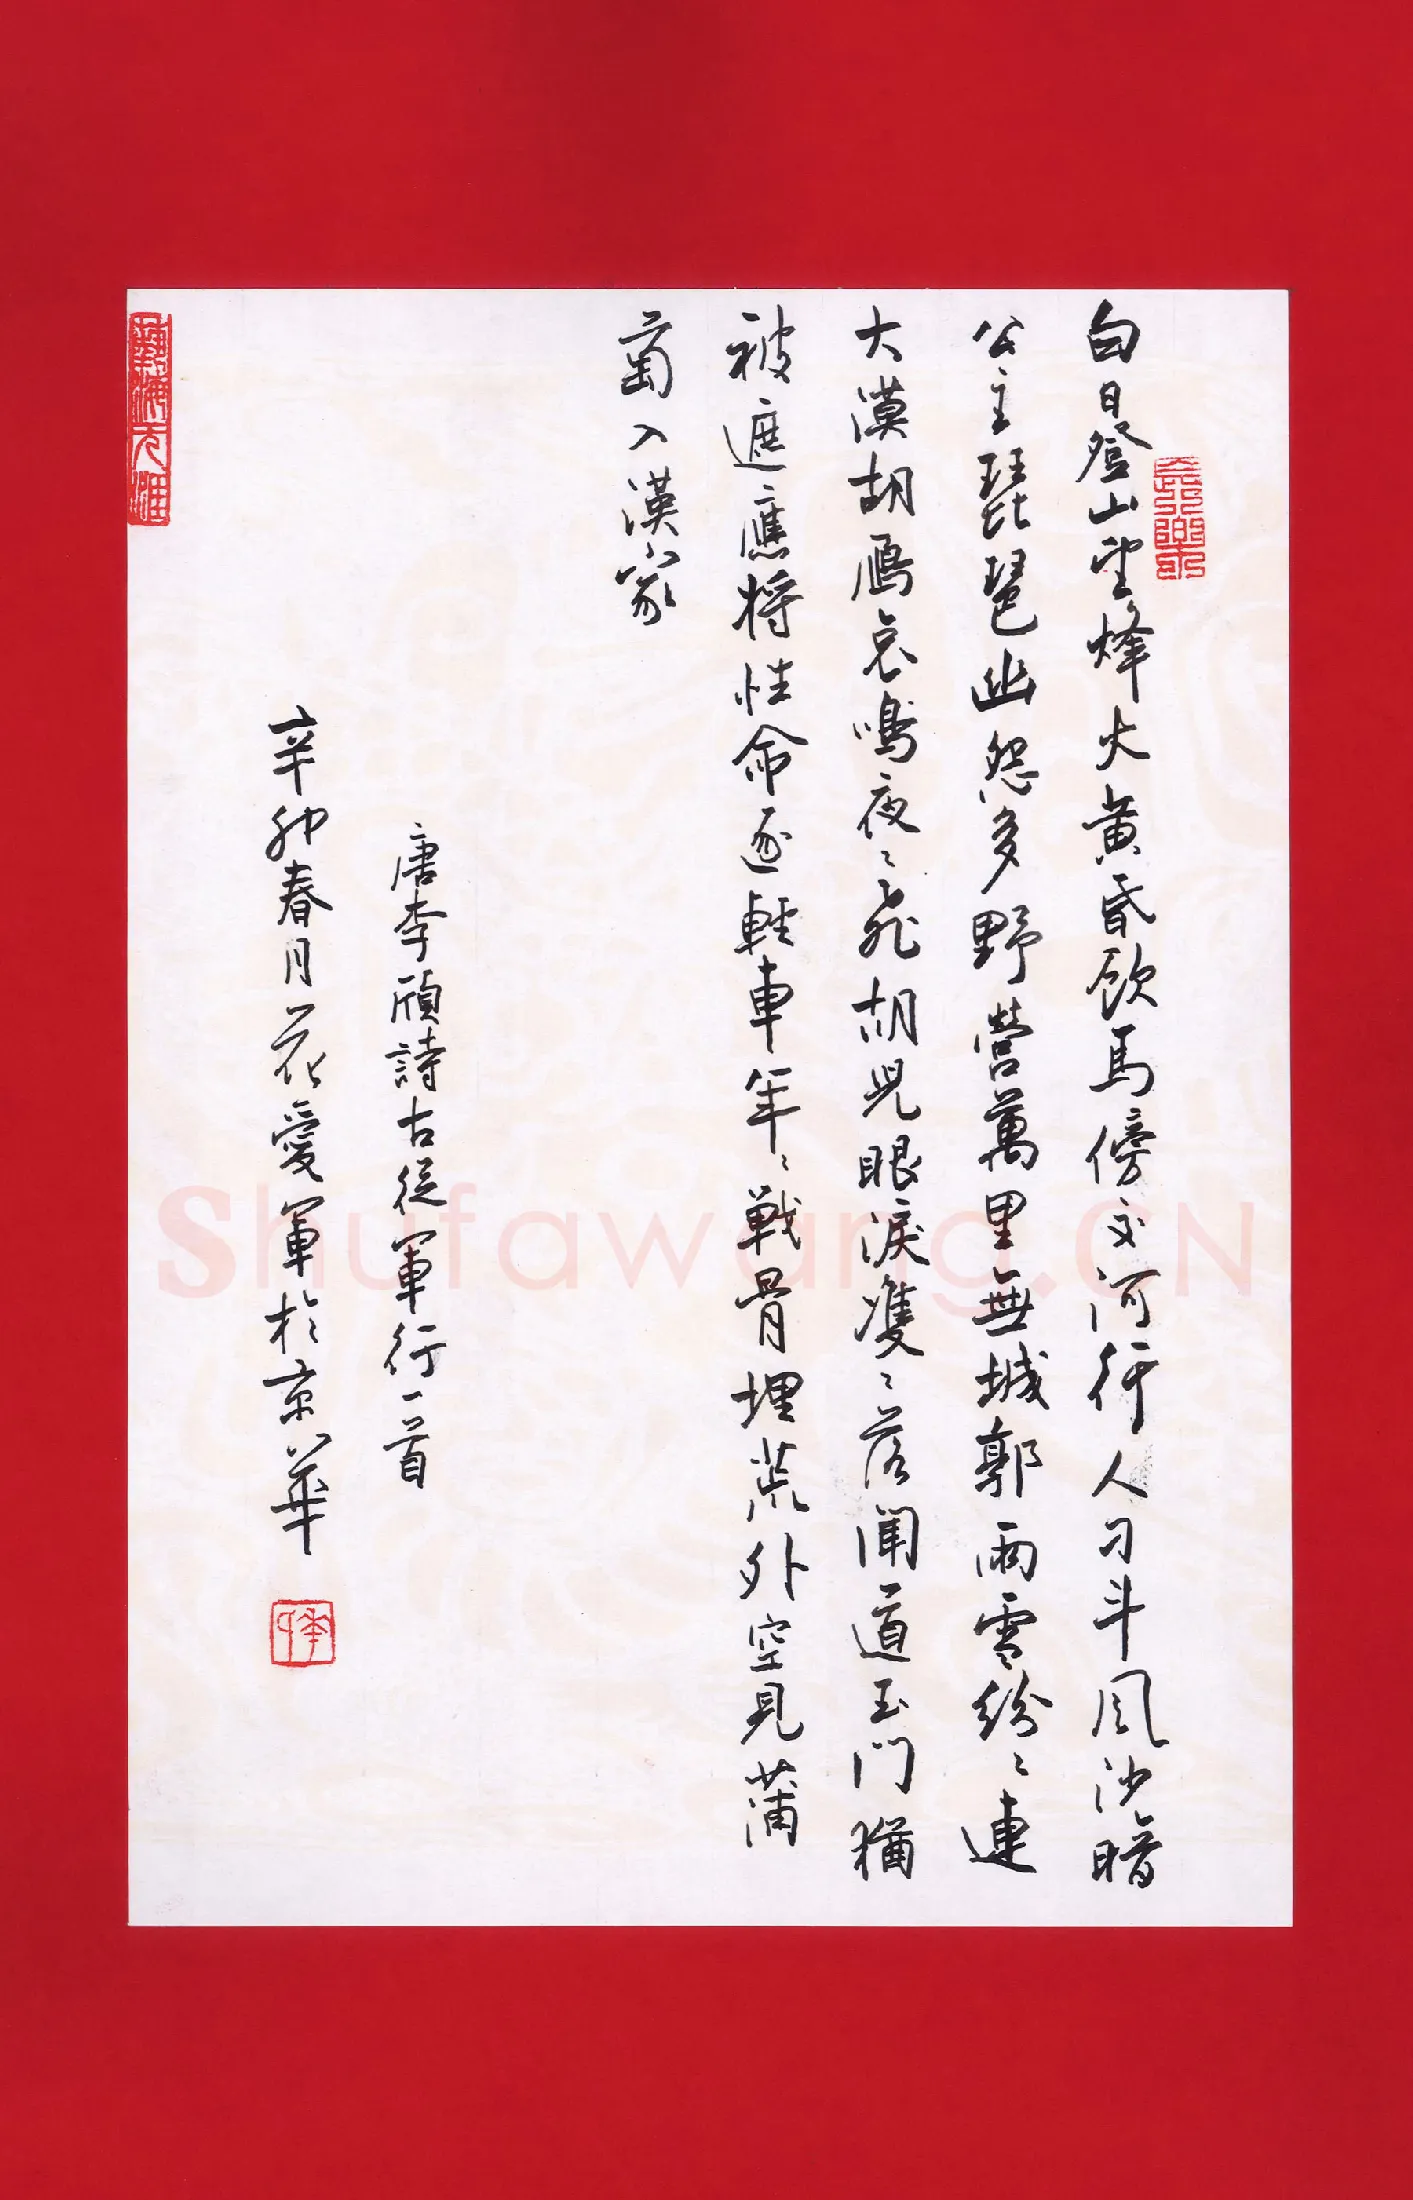 白日登山望烽火黄昏飲馬傍交河行人刁斗風沙暗
公主琵琶幽怨多野營萬里無城郭雨雪紛〻連
大漠胡雁哀鳴夜〻飛胡兒眼淚雙〻落聞道玉門猶
被遮應將性命逐輕車年〻戰骨埋荒外空見蒲
萄入漢家
唐李頎詩古從軍行一首
辛卯春月花愛軍於京華
Shufawang.CN